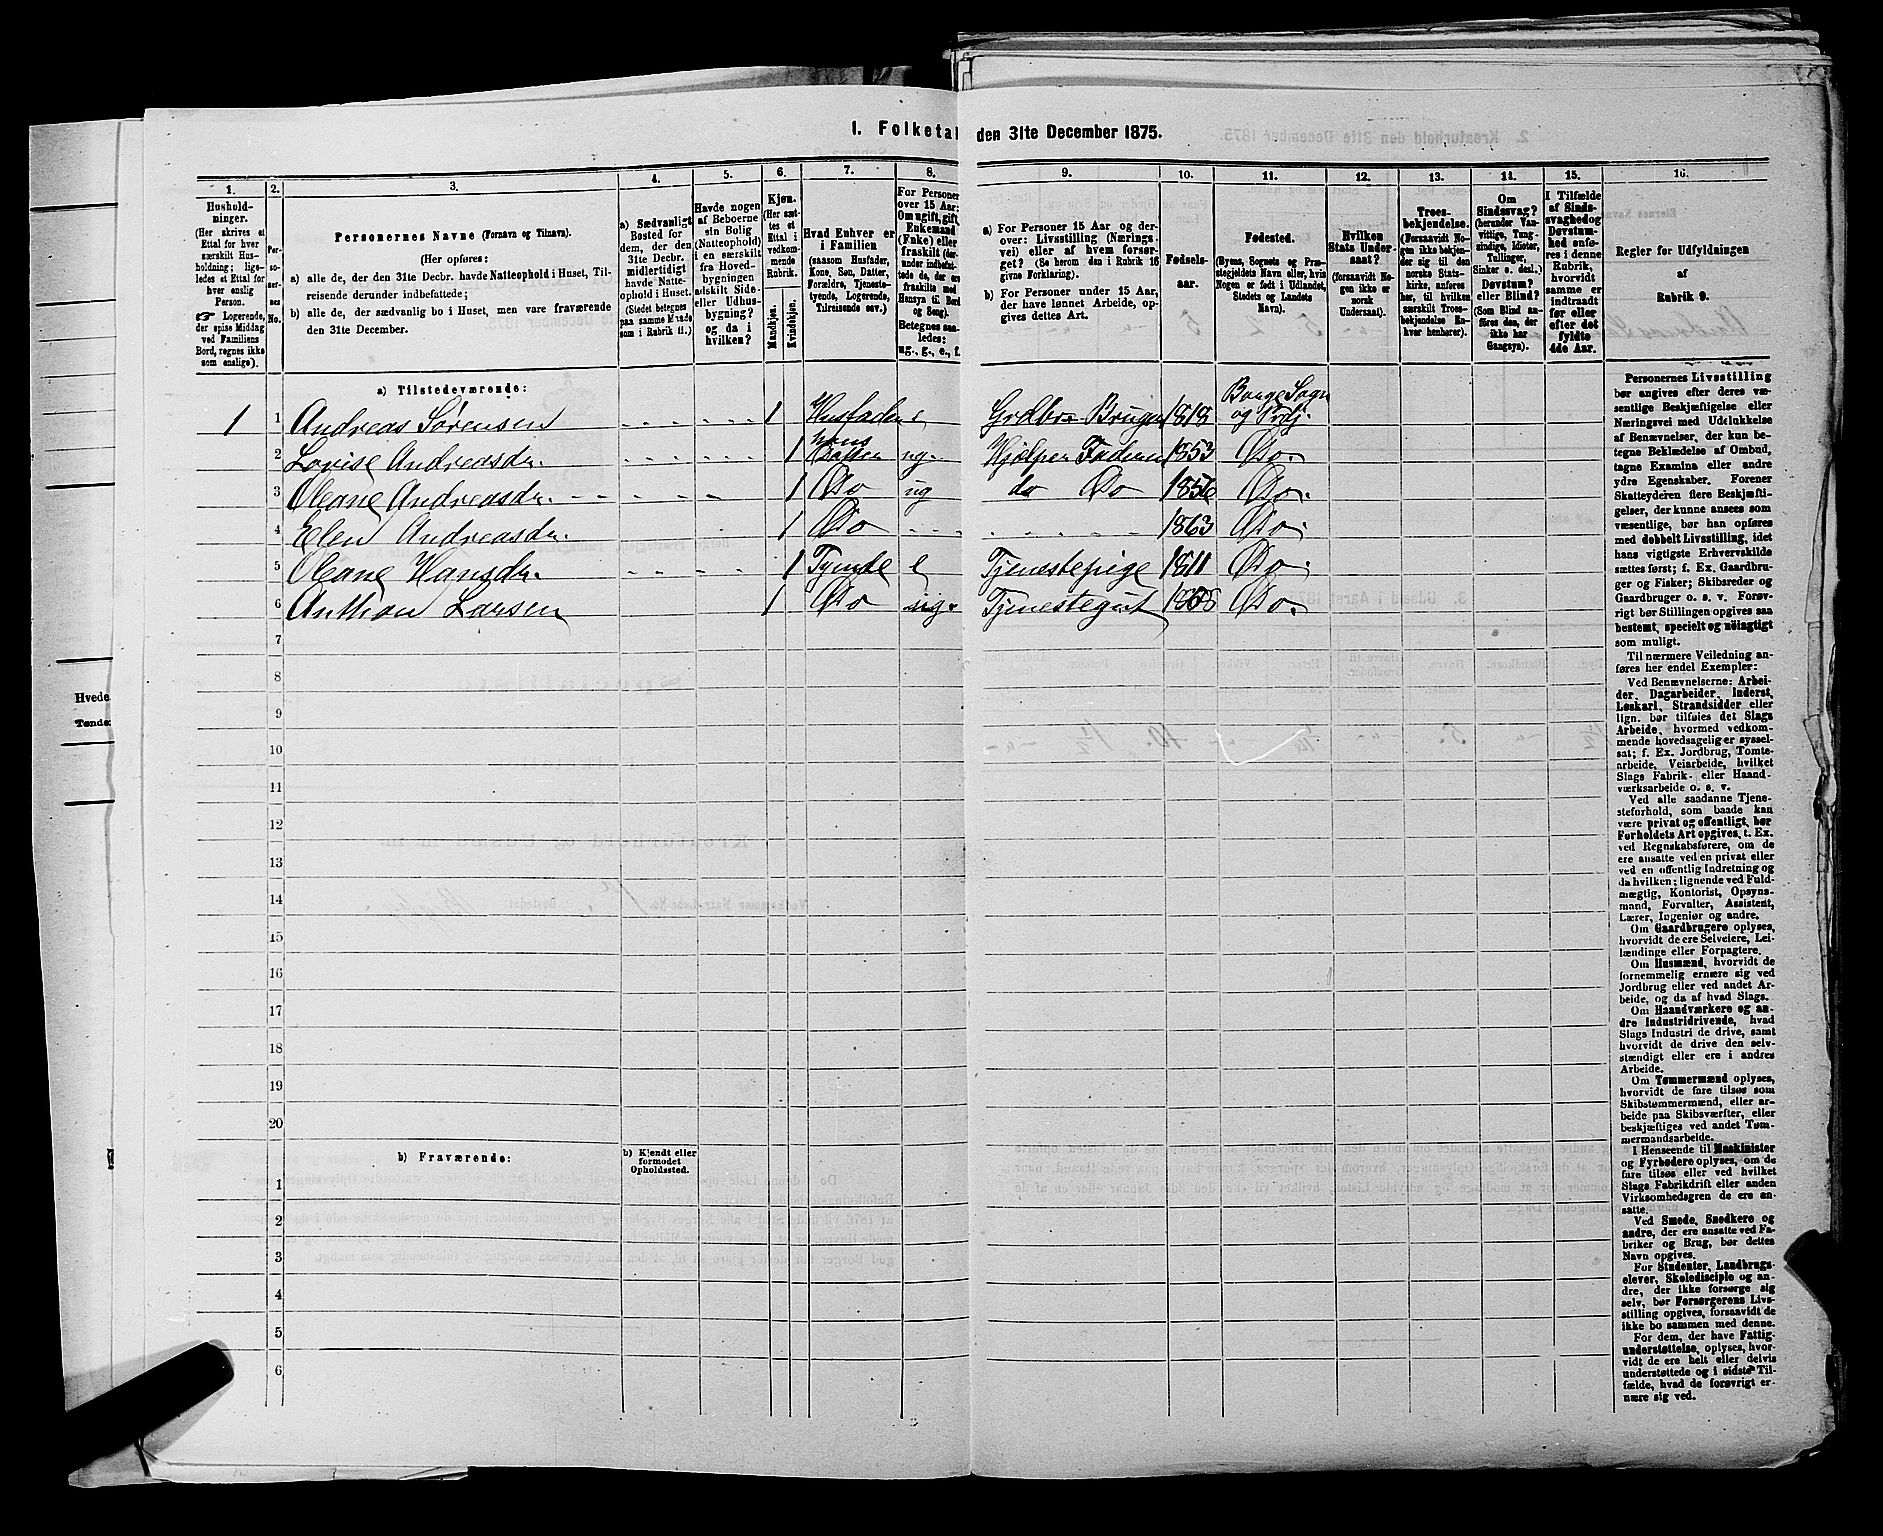 1. Folketal den 31te December 1875.
1. 2. 3. 4. 5. 6. 7. 8. 9. 10. 11. 12. 13. 14. 15. 16.
Hushold-
ninger.
(Her skrives et
Ettal for hver
særskilt Hus-
holdning; lige-
ledes et Ettal for
hver enslig
Person.
☛ Logerende,
der spise Middag
ved Familiens
Bord, regnes ikke
som enslige).
Per-
so-
ner-
nes
No.
Personernes Navne (Fornavn og Tilnavn).
(Her opføres:
a) alle de, der den 31te Decbr. havde Natteophold i Huset, Til-
reisende derunder indbefattede;
b) alle de, der sædvanlig bo i Huset, men vare fraværende
den 31te December.
a) Sædvanligt
Bosted for
dem, der den
31te Decbr.
midlertidigt
havde Natte-
ophold i Huset.
(Stedet betegnes
paa samme Maade
som i Rubrik 11.)
Havde nogen
af Beboerne
sin Bolig
(Natteophold)
i en særskilt
fra Hoved-
bygningen
adskilt Side-
eller Udhus-
bygning?
og da i
hvilken?
Kjøn.
(Her sæt-
tes et
Ettal i
vedkom-
mende
Rubrik.
Mandkjøn.
Kvindekjøn.
Hvad Enhver er
i Familien
(saasom Husfader,
Kone, Søn, Datter,
Forældre, Tjeneste-
tyende, Logerende,
Tilreisende osv.)
For Personer
over 15 Aar:
Om ugift, gift,
Enkemand
(Enke) eller
fraskilt (der-
under indbefat-
tede de, der ere
fraskilte med
Hensyn til Bord
og Seng).
Betegnes saa-
ledes:
ug., g., e., f.
a) For Personer 15 Aar og der-
over: Livsstilling (Nærings-
vei) eller af hvem forsør-
get? (Se herom den i Rubrik 16
givne Forklaring).
b) For Personer under 15 Aar,
der have lønnet Arbeide, op-
gives dettes Art.
Fødsels-
aar.
Fødested.
(Byens, Sognets og Præ-
stegjeldets Navn eller, hvis
Nogen er født i Udlandet,
Stedets og Landets
Navn).
Hvilken
Stats Under-
saat?
(forsaavidt No-
gen ikke er
norsk
Undersaat).
Troes-
bekjendelse.
(Forsaavidt No-
gen ikke bekjen-
der sig til den
norske Stats-
kirke, anføres
her, til hvilken
særskilt Troes-
bekjendelse En-
hver henhører).
Om
Sindssvag?
(herunder Van-
vittige, Tung-
sindige, Idioter,
Tullinger,
Sinker o. desl.)
Døvstum?
eller Blind?
(Som Blind an-
føres den, der
ikke har
Gangsyn).
I Tilfælde
af Sinds-
svaghed og
Døvstum-
hed anfø-
res i denne
Rubrik,
hvorvidt
samme er
indtraadt
før eller
efter det
fyldte
4de Aar.
Regler for Udfyldningen
af
Rubrik 9.
a) Tilstedeværende:
1 1 Andreas Sørensen 1 Husfader e Grdbr. Bruger 1818 Borge Sogn og Prgj.
2 Lovise Andreasdr. 1 hans Datter ug. Hjælper Faderen 1853 Do.
3 Oleane Andreasdr. 1 Do ug do Do 1856 Do.
4 Elen Andreasdr. 1 Do 1863 Do.
5 Oleane Hansdr. 1 Tyende e Tjenestepige 1811 Do.
6 Anthon Larsen 1 Do ug. Tjenestegut Do.
7
8
9
10
11
12
13
14
15
16
17
18
19
20
b) Fraværende:
b) Kjendt eller
formodet
Opholdssted.
1
2
3
4
5
6
Personernes Livsstilling
bør angives efter deres væ-
sentlige Beskjæftigelse eller
Næringsvei med Udelukkelse
af Benævnelser, der kun be-
tegne Beklædelse af Ombud,
tagne Examina eller andre
ydre Egenskaber. Forener
Skatteyderen flere Beskjæfti-
gelser, der kunne ansees som
væsentlige, bør han opføres
med dobbelt Livsstilling, idet
hans vigtigste Erhvervskilde
sættes først; f. Ex. Gaardbru-
ger og Fisker; Skibsreder og
Gaardbruger o. s. v. Forøv-
rigt bør Stillingen opgives saa
bestemt, specielt og nøiagtigt
som muligt.
Til nærmere Veiledning an-
føres her endel Exempler:
Ved Benævnelserne: Arbei-
der, Dagarbeider, Inderst,
Løskarl, Strandsidder eller
lign. bør tilføies det Slags
Arbeide, hvormed vedkom-
mende hovedsagelig er syssel-
sat; f. Ex. Jordbrug, Tomte-
arbeide, Veiarbeide, hvilket
Slags Fabrik- eller Haand-
værksarbeide o. s. v.
Ved alle saadanne Tjene-
steforhold, som baade kan
være privat og offentligt, bør
Forholdets Art opgives, t. Ex.
ved Regnskabsførere, om de
ere ansatte ved en privat eller
ved en offentlig Indretning og
da hvilken; lignende ved Fuld-
mægtig, Kontorist, Opsyns-
mand, Forvalter, Assistent,
Lærer, Ingeniør og andre.
Om Gaardbrugere oplyses,
hvorvidt de ere Selveiere, Lei-
lændinge eller Forpagtere.
Om Husmænd, hvorvidt de
fornemmelig ernære sig ved
Jordbrug eller ved andet Ar-
beide, og da af hvad Slags.
Om Haandværkere og an-
dre Industridrivende, hvad
Slags Industri de drive, samt
hvorvidt de drive den selv-
stændigt eller ere i andres
Arbeide.
Om Tømmermænd oplyses,
hvorvidt de fare tilsøs som
Skibstømmermænd, eller ar-
beide paa Skibsværfter, eller
beskjæftiges ved andet Tøm-
mermandsarbeide.
I Henseende til Maskinister
og Fyrbødere oplyses, om de
fare tilsøs eller ved hvilket
Slags Fabrikdrift eller anden
Virksomhedsgren de ere an-
satte.
Ved Smede, Snedkere og
andre, der ere ansatte ved Fa-
briker og Brug, bør dettes
Navn opgives.
For Studenter, Landbrugs-
elever, Skoledisciple og an-
dre, der ikke forsørge sig
selv, bør Forsørgerens Livs-
stilling opgives, forsaavidt de
ikke bo sammen med denne.
For dem, der have Fattig-
understøttelse, oplyses, hvor-
vidt de ere helt eller delvis
understøttede og i sidste Til-
fælde, hvad de forøvrigt er-
nære sig ved.
Hvede.
Tønder